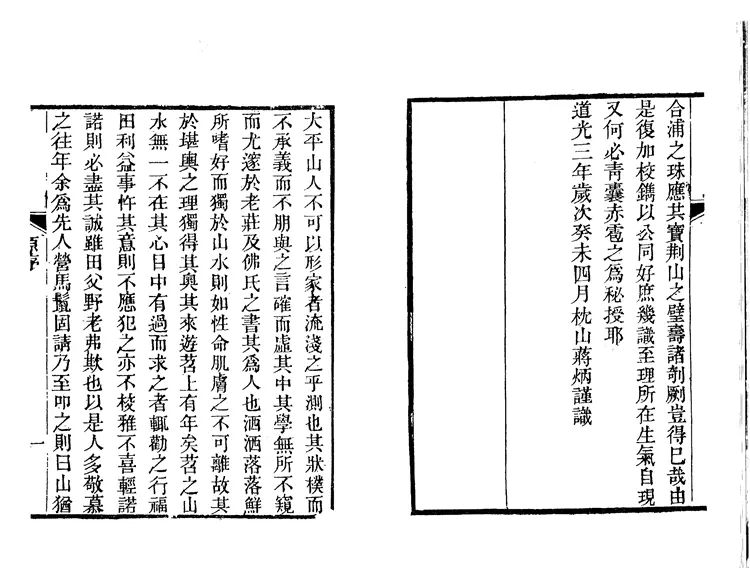 合浦之珠應共寶荆山之璧壽諸剞劂豈得已哉由
是復加校鐫以公同好庶幾識至理所在生氣自現
又何必靑囊赤雹之爲秘授耶
道光三年歲次癸未四月枕山蔣炳謹識
大平山人不可以形家者流淺之乎測也其狀樸而
不承義而不朋與之言確而虛其中其學無所不窺
而尤邃於老莊及佛氏之書其爲人也洒洒落落鮮
所嗜好而獨於山水則如性命肌膚之不可離故其
於堪輿之理獨得其奧其來遊苕上有年矣苕之山
水無一不在其心目中有過而求之者輒勸之行福
田利益事忤其意則不應犯之亦不校雅不喜輕諾
諾則必盡其誠雖田父野老弗欺也以是人多敬慕
之往年余爲先人營馬鬣固請乃至叩之則曰山猶
原序
一